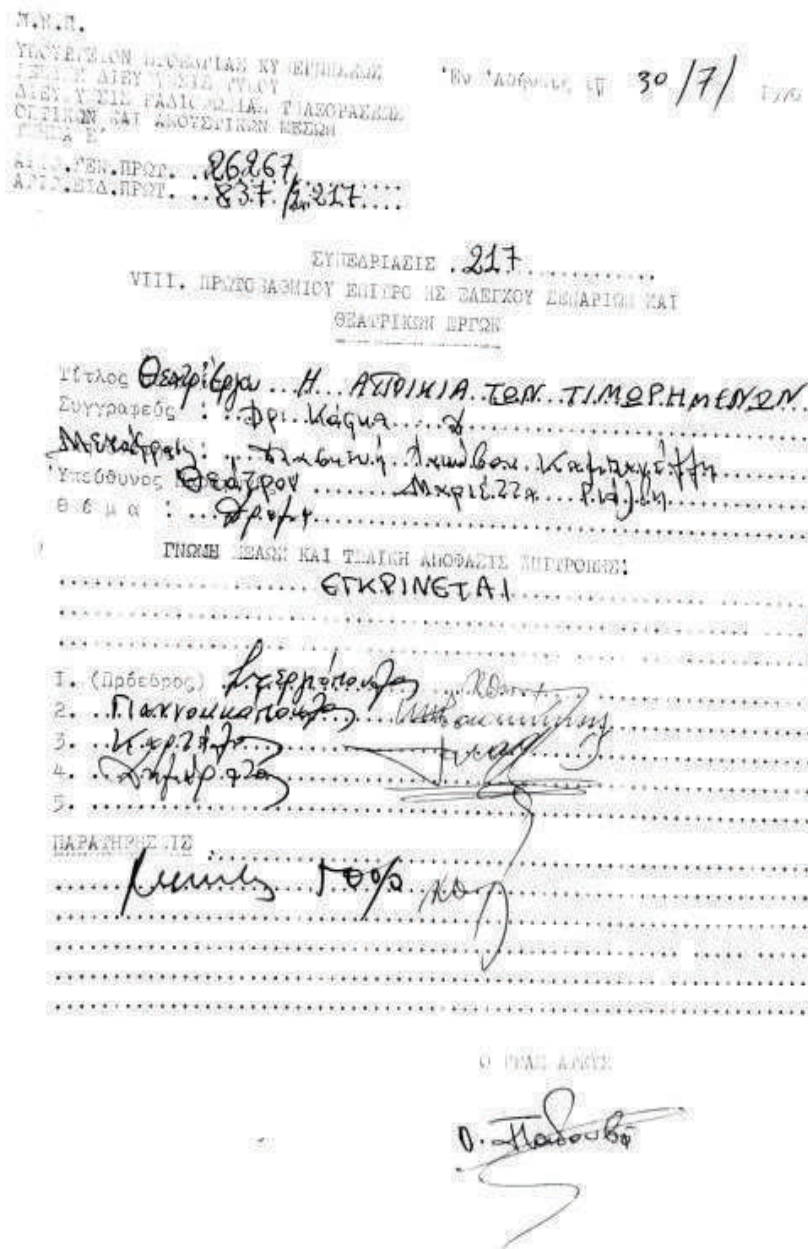 ΥΦΥΠΟΥΡΓΕΙΟΝ ΠΡΟΕΔΡΙΑΣ ΚΥΒΕΡΝΗΣΕΩΣ
ΓΕΝΙΚΗ ΔΙΕΥΘΥΝΣΙΣ ΤΥΠΟΥ
ΔΙΕΥΘΥΝΣΙΣ ΡΑΔΙΟΦΩΝΙΑΣ ΤΗΛΕΟΡΑΣΕΩΣ
ΟΠΤΙΚΩΝ ΚΑΙ ΑΚΟΥΣΤΙΚΩΝ ΜΕΣΩΝ
ΤΜΗΜΑ Ε'
Ἐν Ἀθήναις τῇ 30/7/
ΑΡΙΘ.ΓΕΝ.ΠΡΩΤ. ..26267
ΑΡΙΘ.ΕΙΔ.ΠΡΩΤ. ..837/Σ.217....
ΣΥΝΕΔΡΙΑΣΙΣ .217.............
VIII. ΠΡΩΤΟΒΑΘΜΙΟΥ ΕΠΙΤΡΟΠΗΣ ΕΛΕΓΧΟΥ ΣΕΝΑΡΙΩΝ ΚΑΙ
ΘΕΑΤΡΙΚΩΝ ΕΡΓΩΝ
Τίτλος Θεατρ: έργου ... Η ΑΠΟΙΚΙΑ ΤΩΝ ΤΙΜΩΡΗΜΕΝΩΝ
Συγγραφεύς : ..Φρ. Κάφκα
Διασκευή Ιακώβου Καμπανέλλη
Ὑπεύθυνος Θεάτρου ... Μαριέττα Ριάλδη
Θέμα : ...Δράμα
ΓΝΩΜΗ ΜΕΛΩΝ ΚΑΙ ΤΕΛΙΚΗ ΑΠΟΦΑΣΙΣ ΕΠΙΤΡΟΠΗΣ:
ΕΓΚΡΙΝΕΤΑΙ
1. (Πρόεδρος) Στεργιόπουλος
2. Γιαννακόπουλος
3.
4.
5.
ΠΑΡΑΤΗΡΗΣΕΙΣ
Ο ΓΡΑΜΜΑΤΕΥΣ